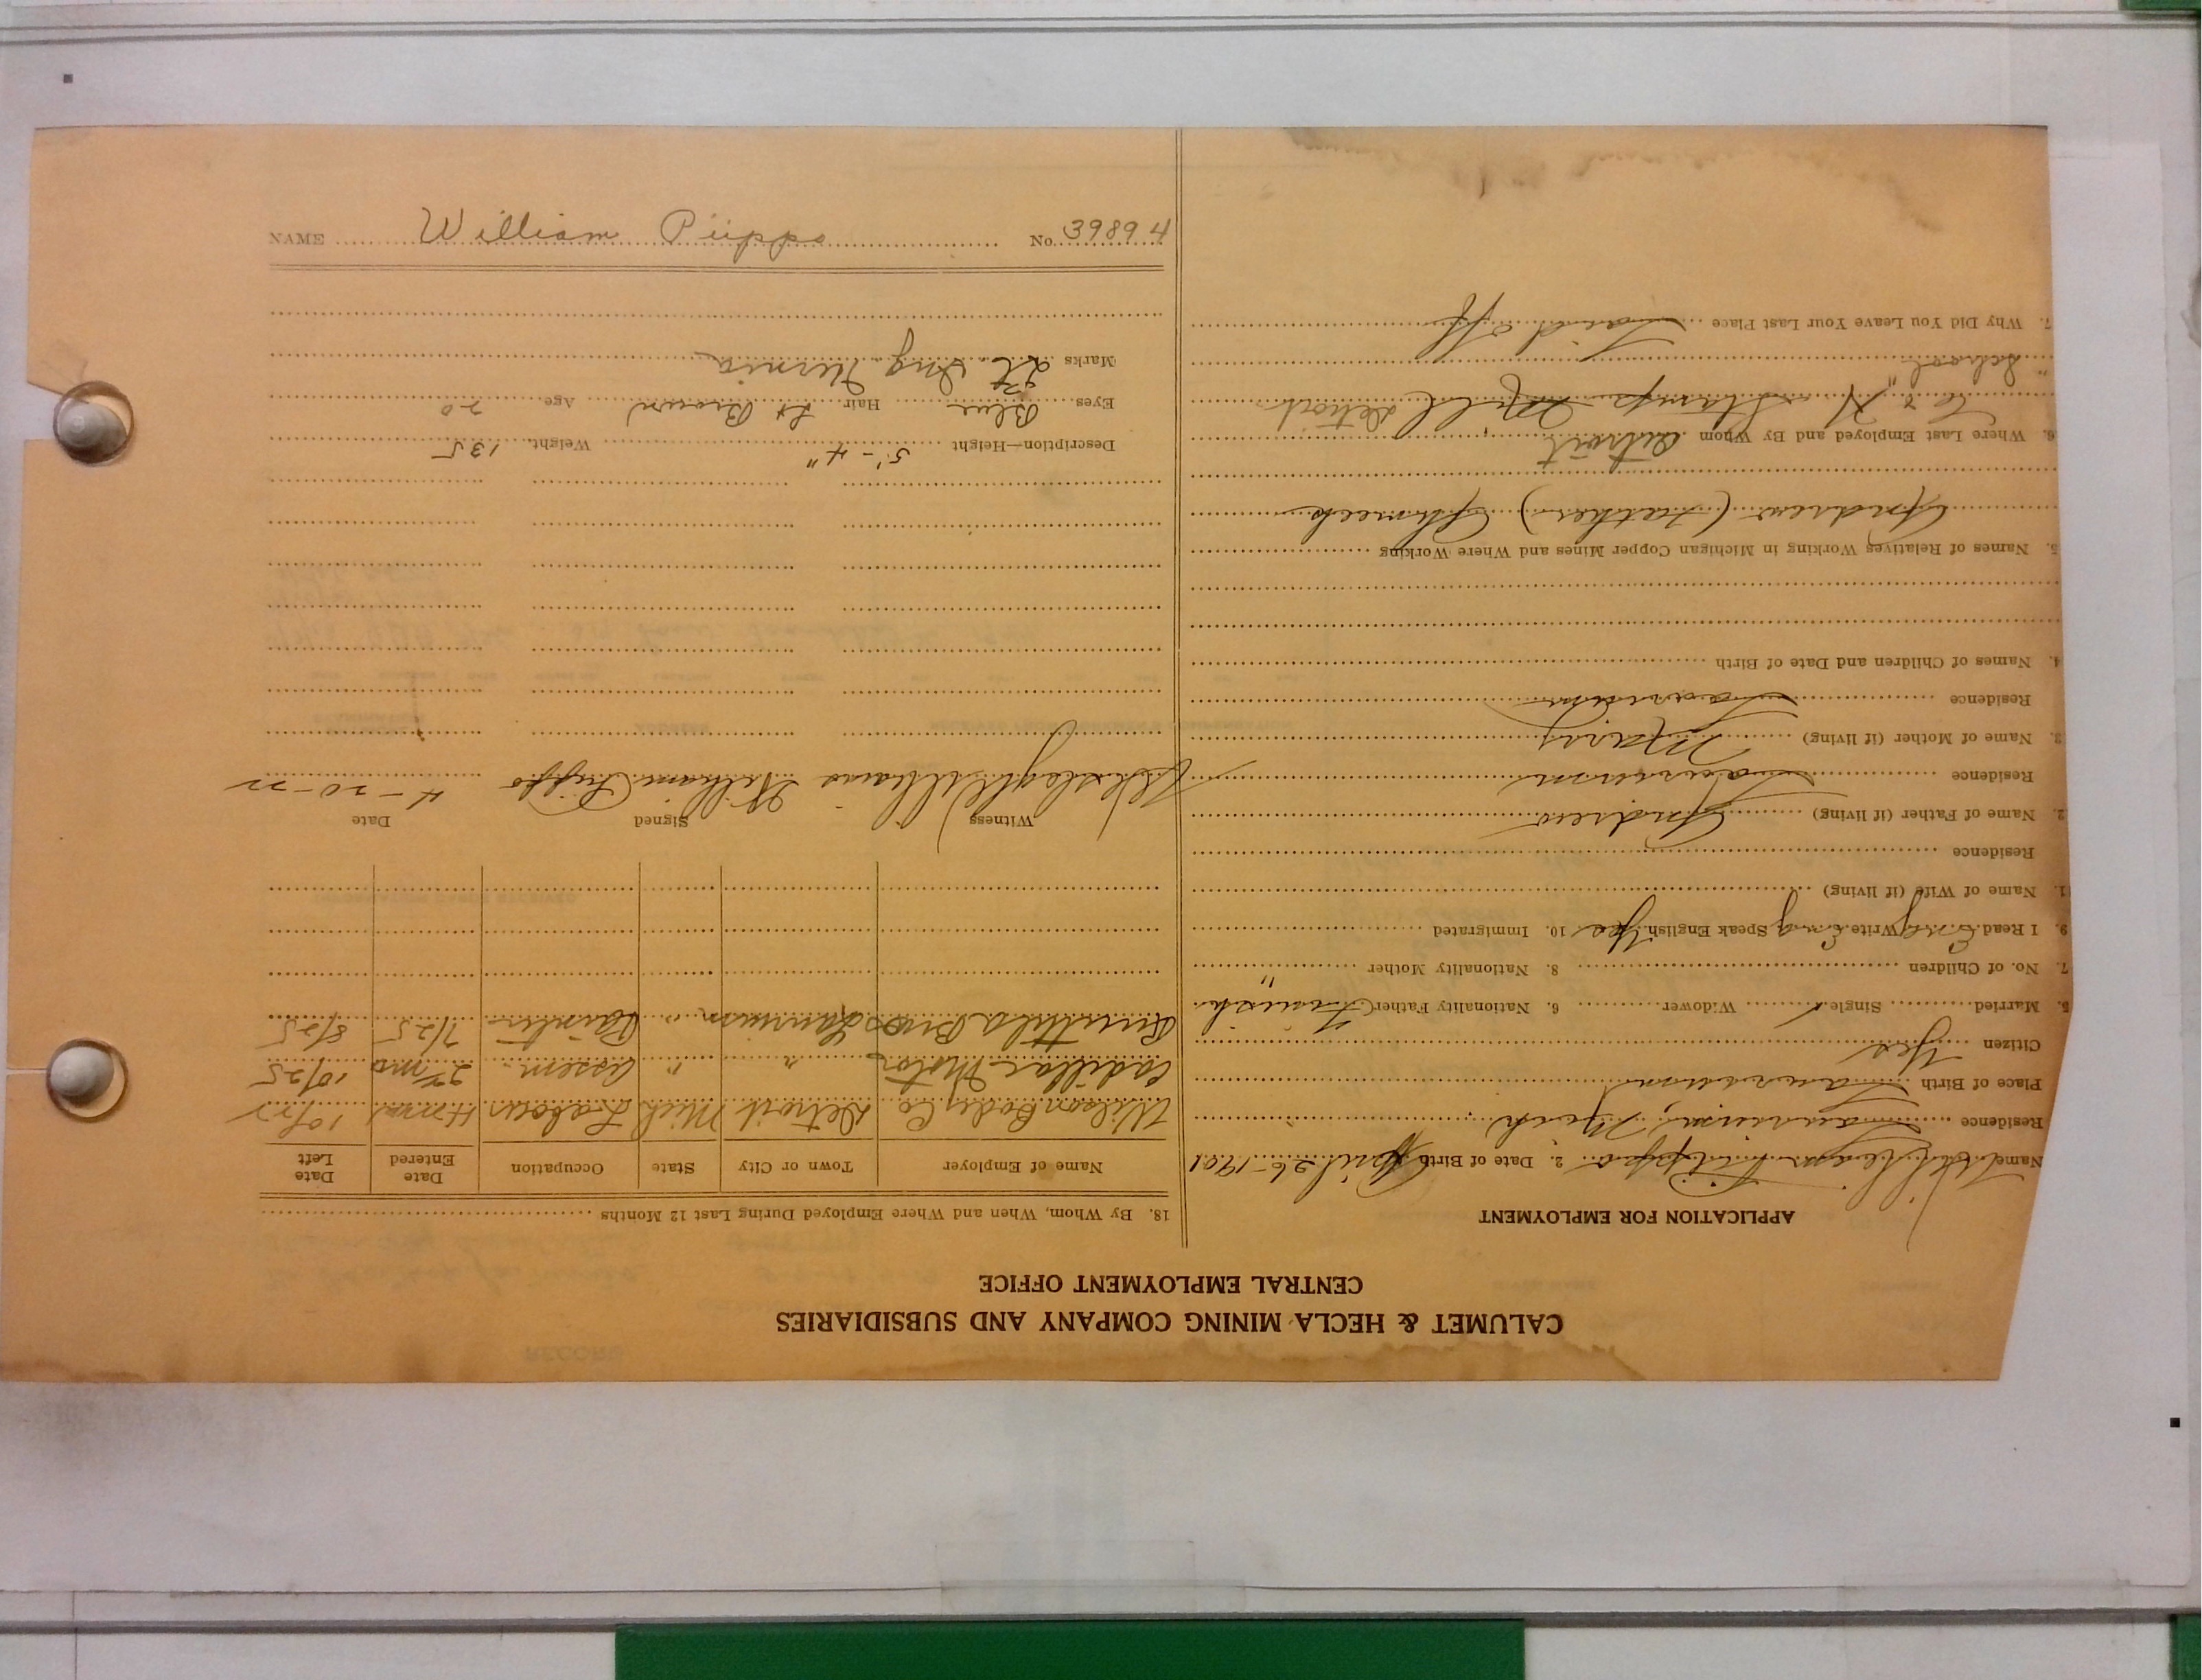 CALUMET & HECLA MINING COMPANY AND SUBSIDIARIES
CENTRAL EMPLOYMENT OFFICE
APPLICATION FOR EMPLOYMENT
Name William Piippo 2. Date of Birth April 26-1901
Residence Laurium, Mich
Place of Birth Laurium
Citizen Yes
5. Married Single ✓ Widower 6. Nationality Father Finnish
7. No. of Children 8. Nationality Mother "
9. I Read Eng Write Eng Speak English Yes 10. Immigrated
1. Name of Wife (if living)
Residence
2. Name of Father (if living) Andrew
Residence Laurium
3. Name of Mother (if living) Mary
Residence Laurium
4. Names of Children and Date of Birth
5. Names of Relatives Working in Michigan Copper Mines and Where Working
Andrew (Father) Ahmeek
6. Where Last Employed and By Whom Detroit
C & H Stamp Mill Detroit
"School"
7. Why Did You Leave Your Last Place Laid off
18. By Whom, When and Where Employed During Last 12 Months
Name of Employer Town or City State Occupation Date Entered Date Left
Wilson Body Co Detroit Mich Labour 4 mos
Cadillac Motor " " Assem. 2 mo 10/25
Bros Laurium " Painter 7/25 8/25
Witness Signed Date
Williams William Piippo 4-20-22
Description—Height 5'-4" Weight 135
Eyes Blue Hair Lt Brown Age 20
Marks Ing Hernia
NAME William Piippo No. 39894